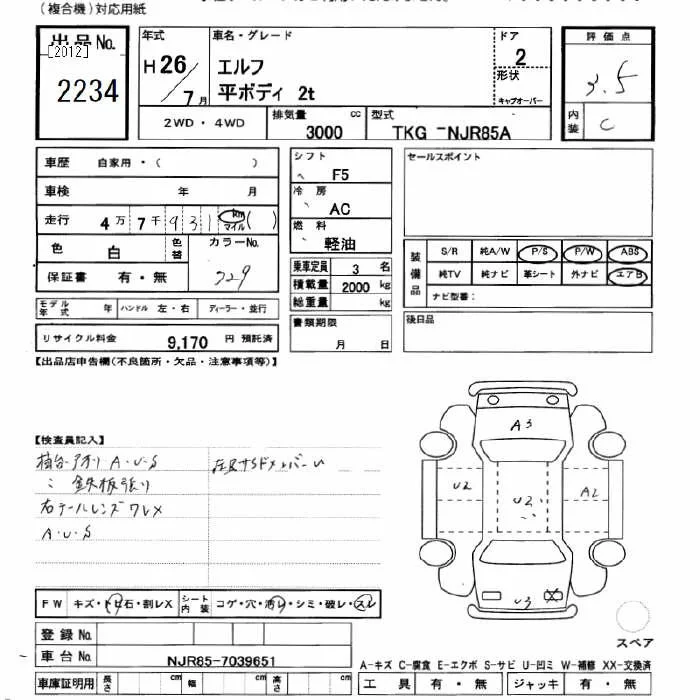 (複合機)対応用紙
出品No.
[2012]
2234
年式
H26/7月
車名・グレード
エルフ
平ボディ 2t
ドア
2
形状
キャブオーバー
評価点
3.5
内装
C
2WD・4WD
排気量
3000 cc
型式
TKG-NJR85A
車歴 自家用・( )
車検 年 月
走行 4万7千931 km マイル( )
色 白 色替 カラーNo. 729
保証書 有・無
モデル年式 年 ハンドル 左・右 ディーラー・並行
リサイクル料金 9,170 円 預託済
シフト F5
冷房 AC
燃料 軽油
乗車定員 3 名
積載量 2000 kg
総重量 kg
書類期限
月 日
セールスポイント
装備品
S/R 純A/W P/S P/W ABS
純TV 純ナビ 革シート 外ナビ エアB
ナビ型番:
後日品
【出品店申告欄(不良箇所・欠品・注意事項等)】
【検査員記入】
荷台アオリ A・U・S
〃 鉄板張り
右テールレンズワレX
A・U・S
A3
U2
U2
A2
U3
スペア
FW キズ・トビ石・割レX シート内装 コゲ・穴・汚レ・シミ・破レ・スレ
登録No.
車台No. NJR85-7039651
車庫証明用 長さ cm 幅 cm 高さ cm
A-キズ C-腐食 E-エクボ S-サビ U-凹ミ W-補修 XX-交換済
工具 有・無 ジャッキ 有・無